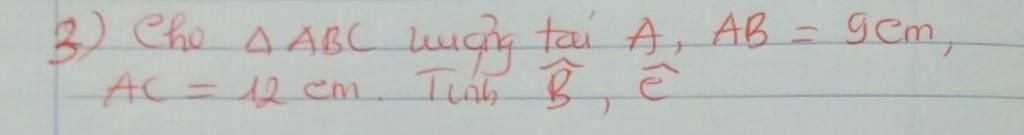 3) Cho Δ ABC vuông tại A, AB = 9cm,
AC = 12 cm. Tính B̂, Ĉ